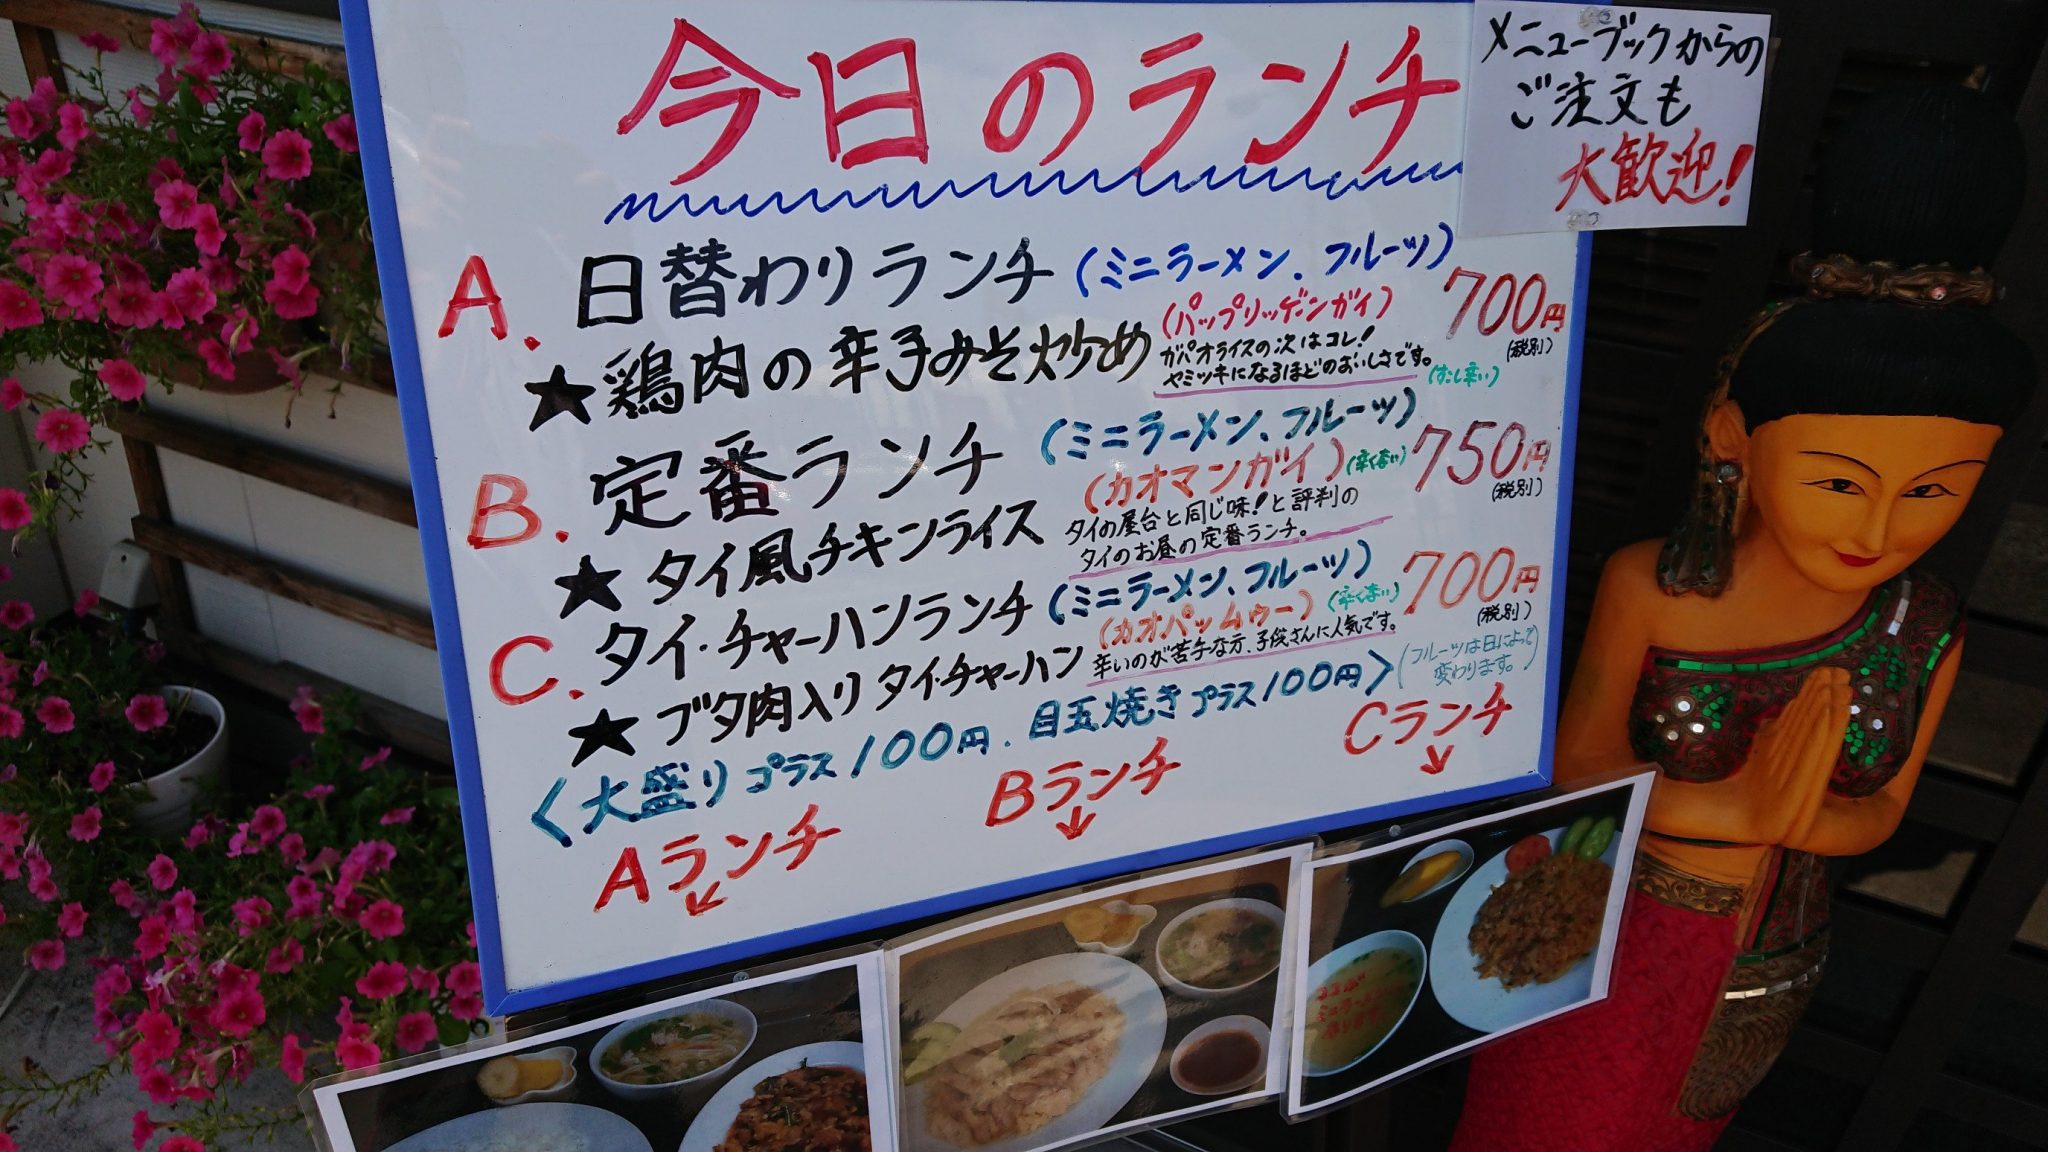 今日のランチ
メニューブックからの
ご注文も
大歓迎!
A. 日替わりランチ (ミニラーメン、フルーツ)
★鶏肉の辛子みそ炒め (パップリッゲンガイ) 700円
(税別)
ガパオライスの次はコレ!
ヤミツキになるほどのおいしさです。(すこし辛い)
B. 定番ランチ (ミニラーメン、フルーツ)
★タイ風チキンライス (カオマンガイ) (辛くない) 750円
(税別)
タイの屋台と同じ味!と評判の
タイのお昼の定番ランチ。
C. タイ・チャーハンランチ (ミニラーメン、フルーツ) 700円
(税別)
★ブタ肉入りタイ・チャーハン (カオパッムゥー) (辛くない)
辛いのが苦手な方、子供さんに人気です。
(フルーツは日によって
変わります。)
〈大盛りプラス100円、目玉焼きプラス100円〉
Aランチ
↙
Bランチ
↓
Cランチ
↓